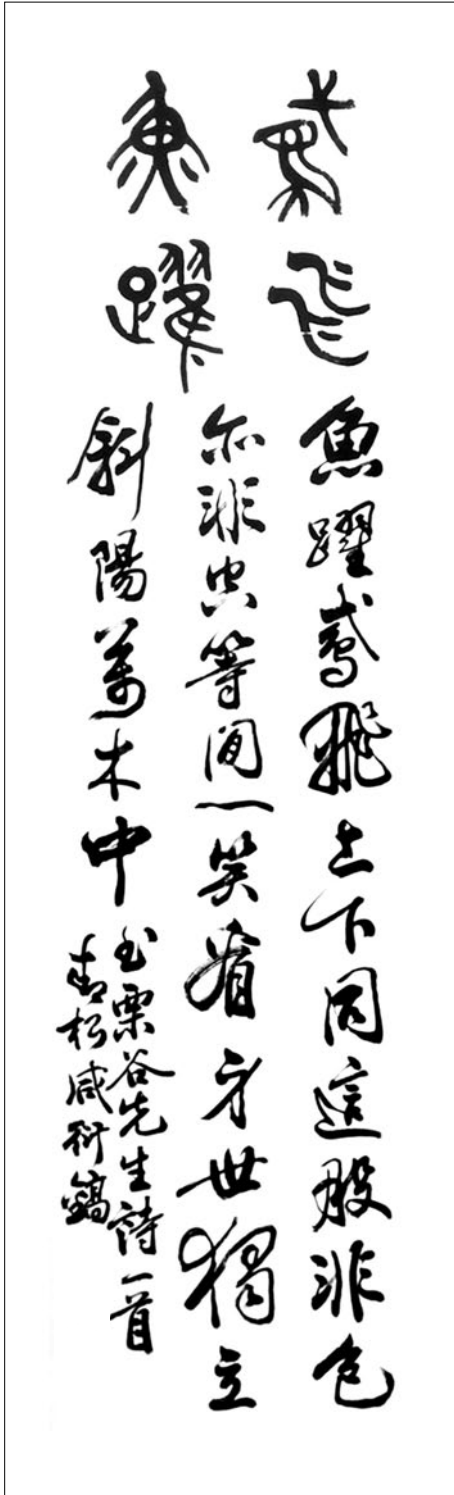 鳶飛
魚躍
魚躍鳶飛上下同這般非色
亦非空等閒一笑看身世獨立
斜陽萬木中
書栗谷先生詩一首
咸衍鎬